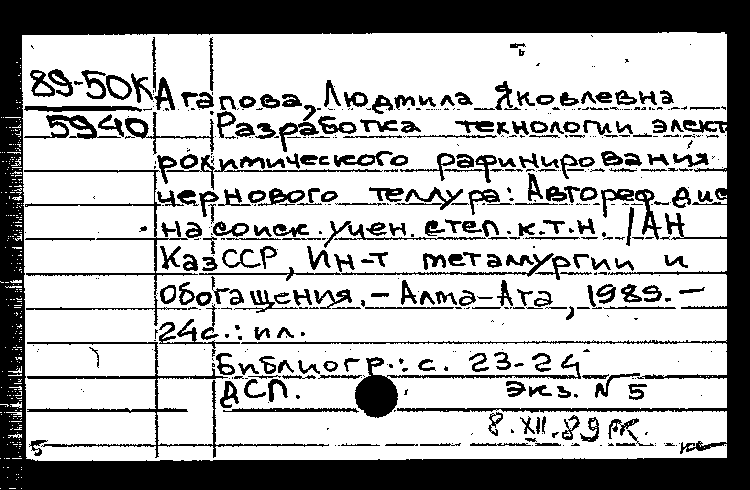 89-50К Агапова, Людмила Яковлевна
5940 Разработка технологии элект
рохимического рафинирования
чернового теллура: Автореф. дис
на соиск. учен. степ. к.т.н. /АН
КазССР, Ин-т металлургии и
обогащения. — Алма-Ата, 1989. —
24с.: ил.
Библиогр.: с. 23-24
ДСП. Экз. N 5
8.XII.89
5